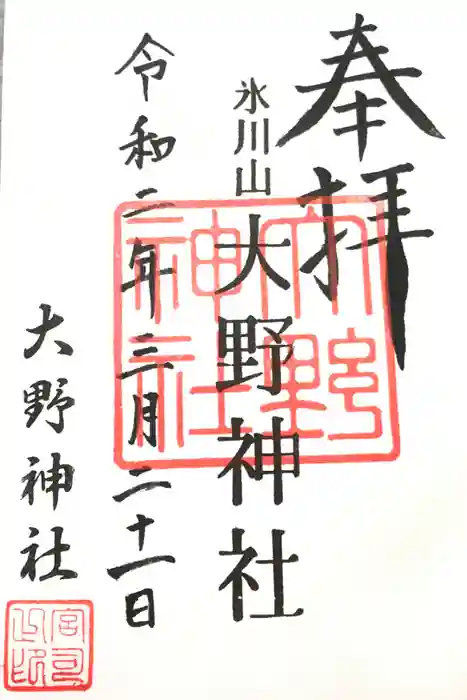 奉拝
氷川山
大野神社
令和二年三月二十一日
大野神社
大野神社
宮司之印